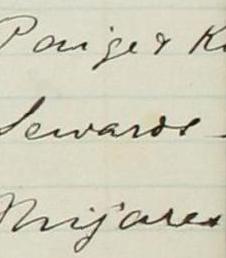 Paige & K
Sewards -
Mijares